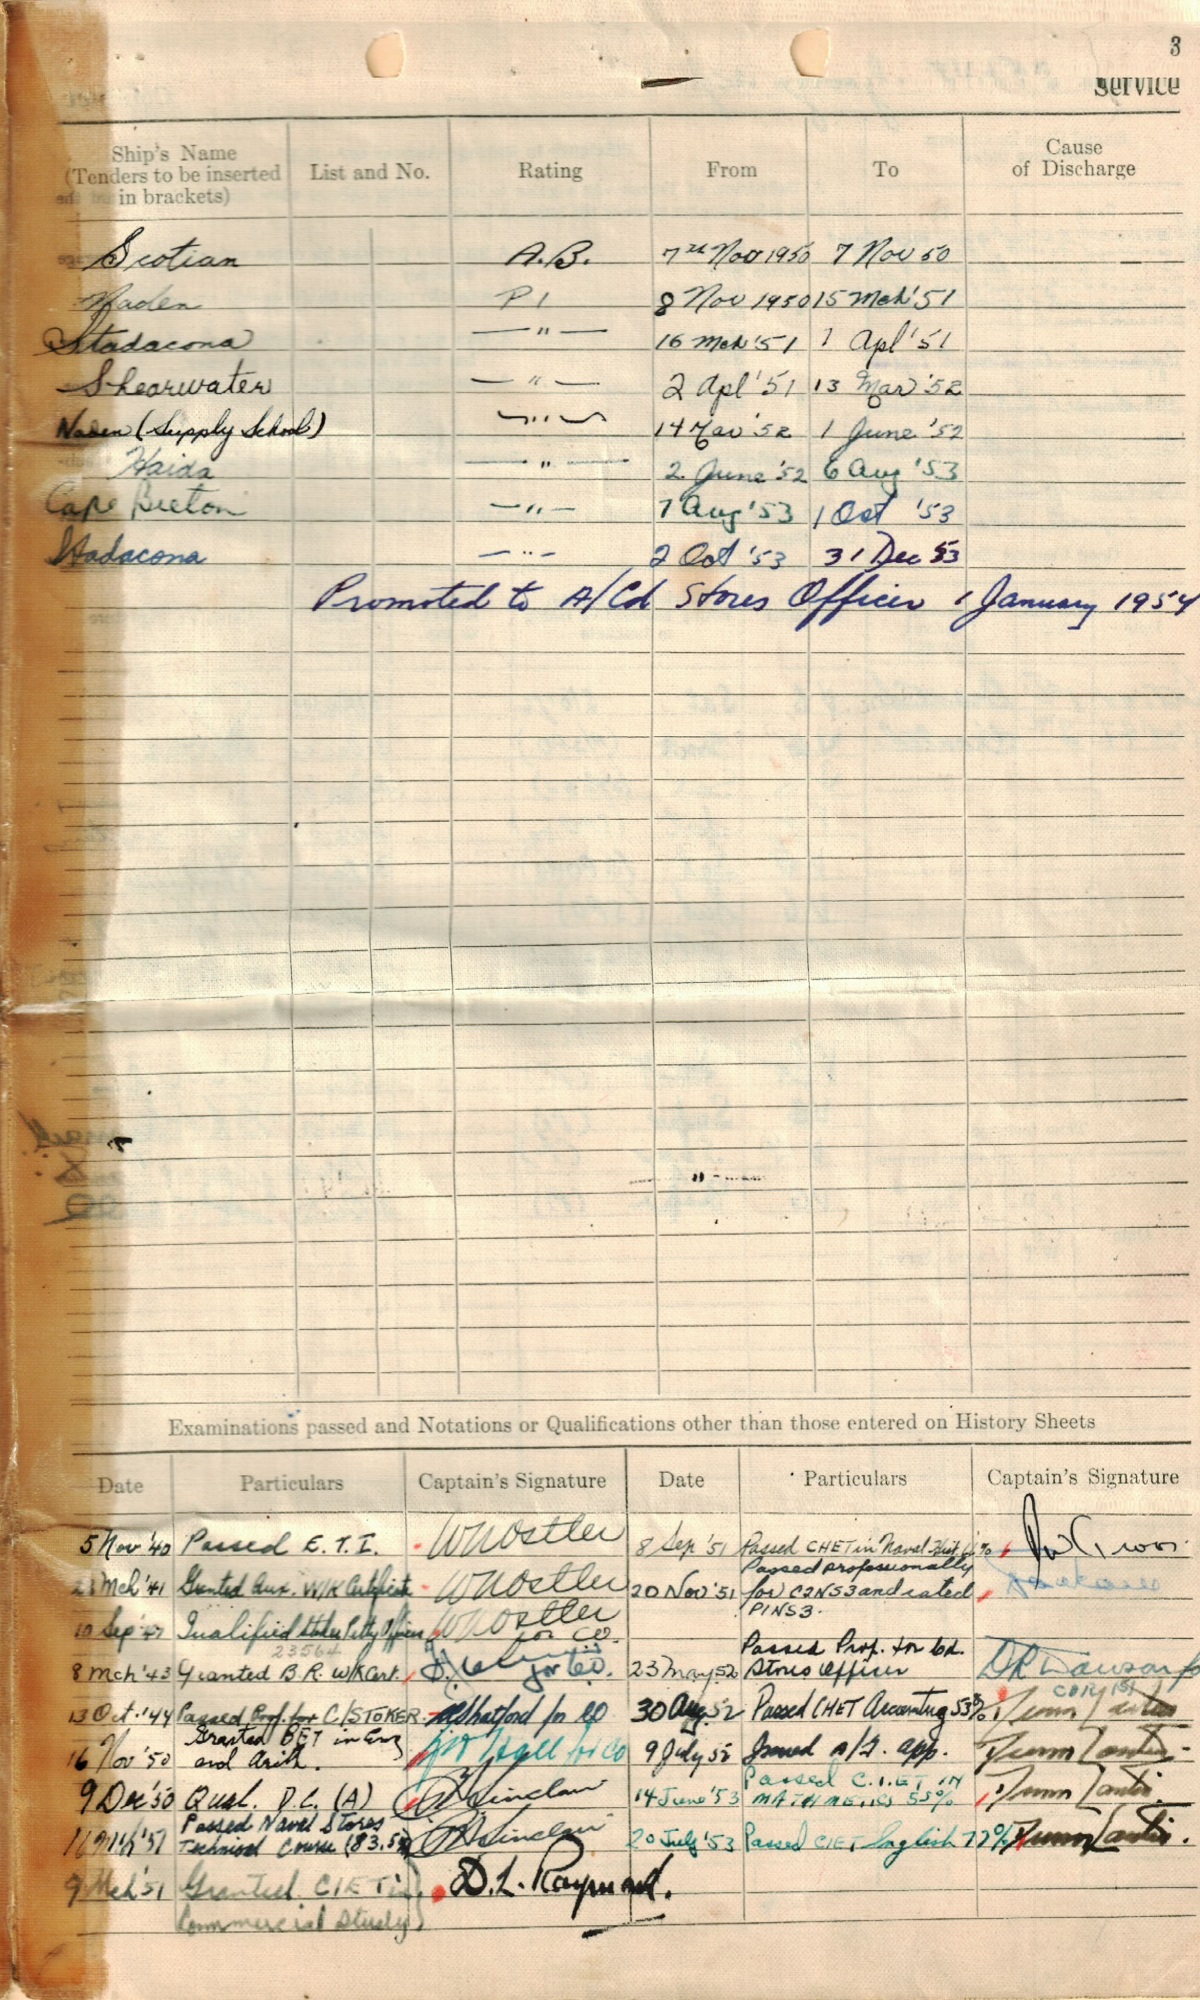 3
Service
Ship's Name
(Tenders to be inserted
in brackets)
List and No.
Rating
From
To
Cause
of Discharge
Scotian A.B. 7th Nov 1950 7 Nov 50
Naden P1 8 Nov 1950 15 Mch '51
Stadacona — " — 16 Mch '51 1 Apl '51
Shearwater — " — 2 Apl '51 13 Mar '52
Naden (Supply School) — " — 14 Mar '52 1 June '52
Haida — " — 2 June '52 6 Aug '53
Cape Breton — " — 7 Aug '53 1 Oct '53
Stadacona — " — 2 Oct '53 31 Dec 53
Promoted to A/Cd Stores Officer 1 January 1954
Examinations passed and Notations or Qualifications other than those entered on History Sheets
Date Particulars Captain's Signature Date Particulars Captain's Signature
5 Nov '40 Passed E.T.I. 8 Sep '51 Passed CHET in Naval Hist %
Mch '41 Granted Aux. W/K Certificate 20 Nov '51 Passed professionally
for C2NS3 and rated
P1NS3.
10 Sep Qualified Stoker Petty Officer for CO.
23564
8 Mch '43 Granted B.R. W/K Cert. for CO. 23 May 52 Passed Prof. for Cd.
Stores Officer
CDR
13 Oct. '44 Passed Prof. for C/STOKER for CO 30 Aug 52 Passed CHET Accounting 53%
16 Nov '50 Granted BET in Eng
and Arith. for CO 9 July 52 Issued app.
9 Dec '50 Qual. D.C. (A) Sinclair 14 June '53 Passed C.I.ET in
55%
Passed Naval Stores
Technical Course (83.5 Sinclair 20 July '53 Passed CIET English 77%
9 Mch '51 Granted CIET in D.L. Raymond.
Commercial Study